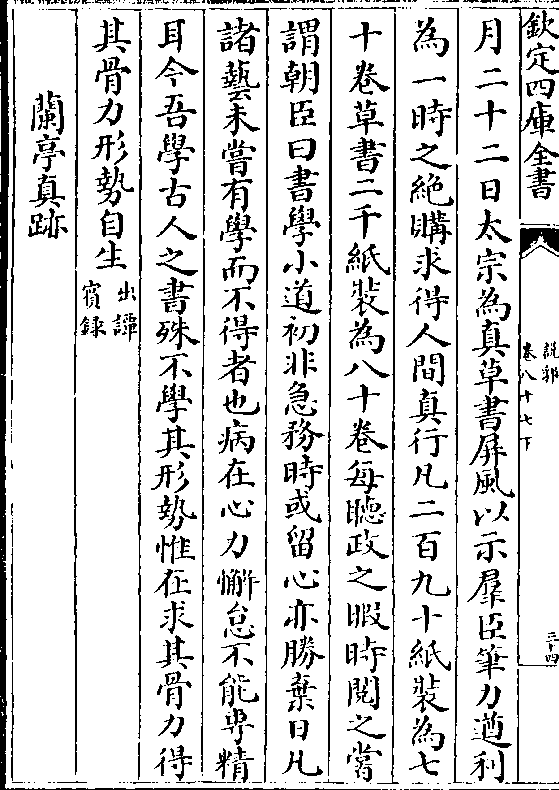 欽定四庫全書
說郛
卷八十七下
三十四
月二十二日太宗為真草書屏風以示羣臣筆力遒利
為一時之絶購求得人間真行凡二百九十紙裝為七
十卷草書二千紙裝為八十卷每聽政之暇時閱之嘗
謂朝臣曰書學小道初非急務時或留心亦勝棄日凡
諸藝未嘗有學而不得者也病在心力懈怠不能專精
耳今吾學古人之書殊不學其形勢惟在求其骨力得
其骨力形勢自生
出譚
賓錄
蘭亭真跡